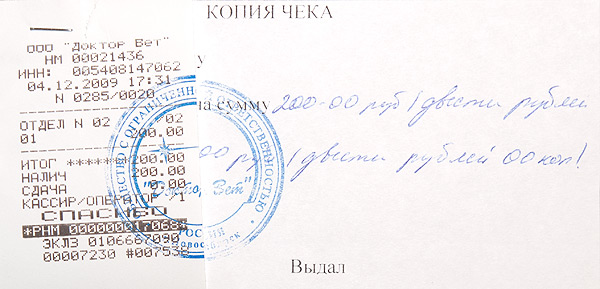 КОПИЯ ЧЕКА
ООО "Доктор Вет"
НМ 00021436
ИНН: 005408147062
04.12.2009 17:31
N 0285/0020
ОТДЕЛ N 02 *02
01 200.00
ИТОГ *******200.00
НАЛИЧ *200.00
СДАЧА 0.00
КАССИР/ОПЕРАТОР 1
СПАСИБО
*РНМ 00000001706
ЭКЛЗ 0106667090
00007230 #007538
на сумму 200-00 руб (двести рублей
00 руб (двести рублей 00 коп)
ОБЩЕСТВО С ОГРАНИЧЕННОЙ ОТВЕТСТВЕННОСТЬЮ
"Доктор Вет"
РОССИЯ
Выдал